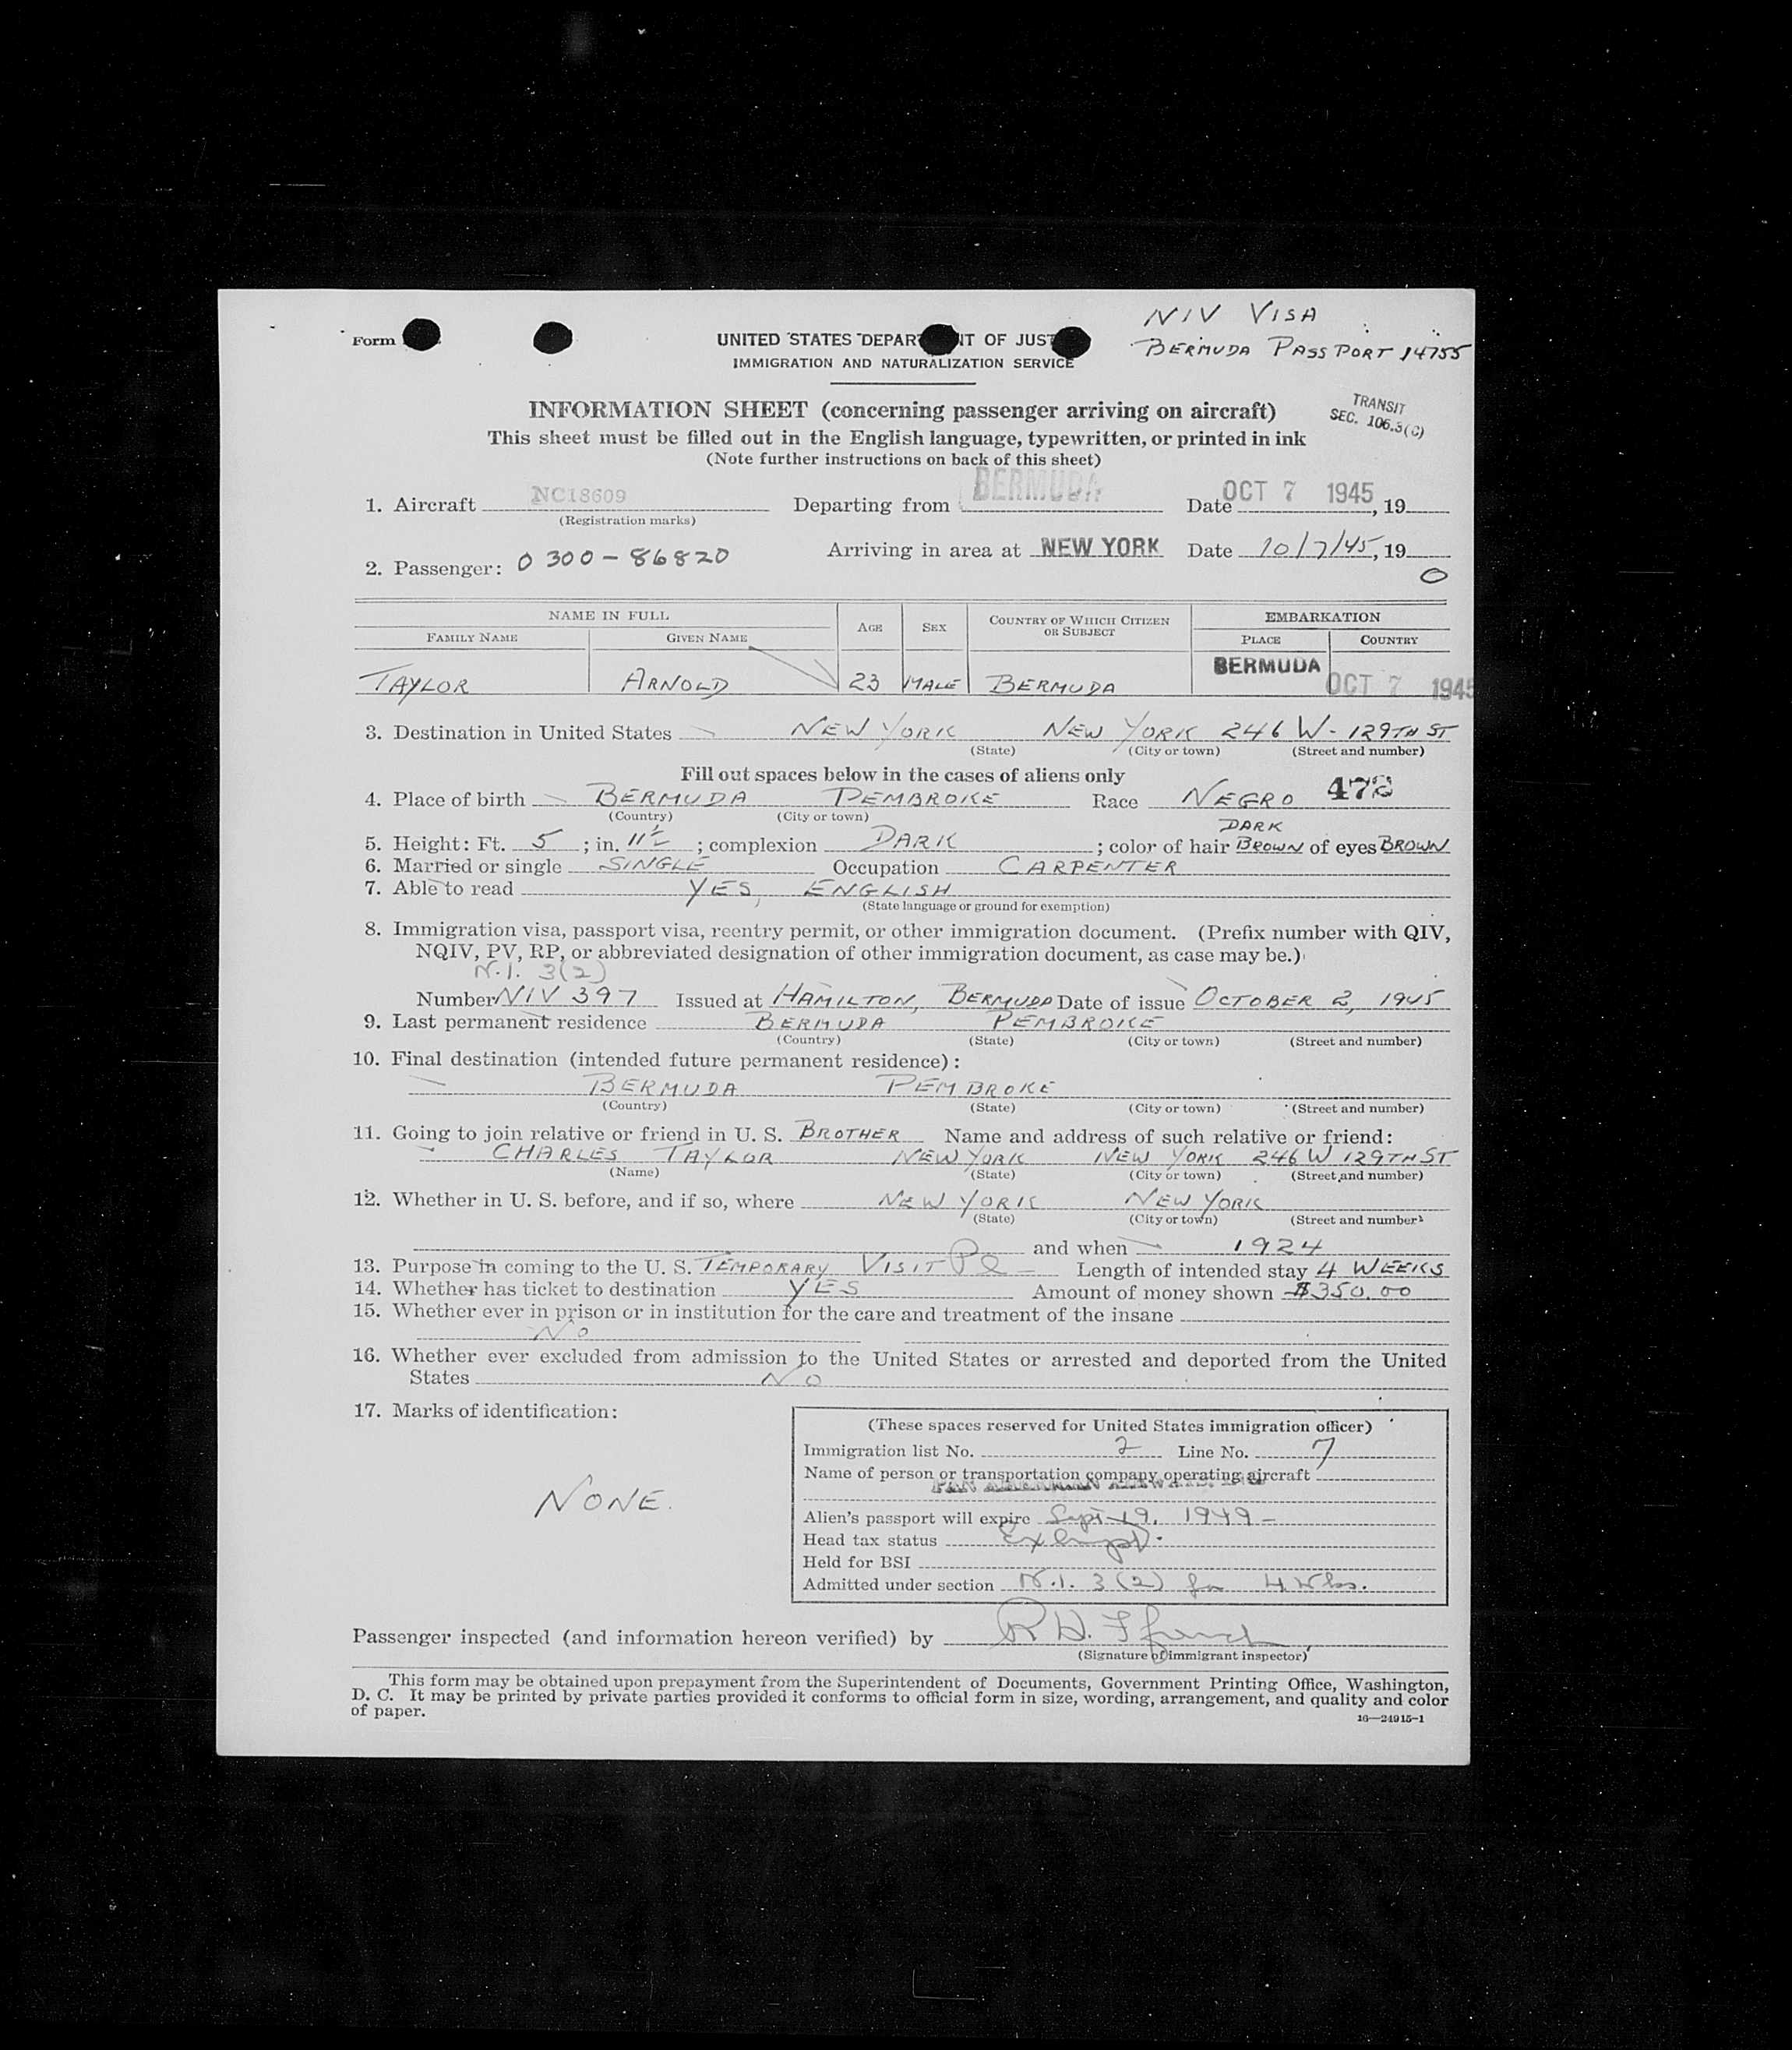 NIV VISA
BERMUDA PASSPORT 14755
Form
UNITED STATES DEPAR T OF JUST
IMMIGRATION AND NATURALIZATION SERVICE
INFORMATION SHEET (concerning passenger arriving on aircraft)
TRANSIT
SEC. 106.3(C)
This sheet must be filled out in the English language, typewritten, or printed in ink
(Note further instructions on back of this sheet)
1. Aircraft NC18609 Departing from BERMUDA Date OCT 7 1945, 19
(Registration marks)
Arriving in area at NEW YORK Date 10/7/45, 19
2. Passenger: 0 300-86820
0
NAME IN FULL
FAMILY NAME GIVEN NAME AGE SEX COUNTRY OF WHICH CITIZEN OR SUBJECT EMBARKATION
PLACE COUNTRY
TAYLOR ARNOLD 23 MALE BERMUDA BERMUDA OCT 7 1945
3. Destination in United States NEW YORK NEW YORK 246 W- 129TH ST
(State) (City or town) (Street and number)
Fill out spaces below in the cases of aliens only
4. Place of birth BERMUDA PEMBROKE Race NEGRO 478
(Country) (City or town)
DARK
5. Height: Ft. 5; in. 11½; complexion DARK; color of hair BROWN of eyes BROWN
6. Married or single SINGLE Occupation CARPENTER
7. Able to read YES, ENGLISH
(State language or ground for exemption)
8. Immigration visa, passport visa, reentry permit, or other immigration document. (Prefix number with QIV,
NQIV, PV, RP, or abbreviated designation of other immigration document, as case may be.)
N.I. 3(2)
Number NIV 397 Issued at HAMILTON, BERMUDA Date of issue OCTOBER 2, 1945
9. Last permanent residence BERMUDA PEMBROKE
(Country) (State) (City or town) (Street and number)
10. Final destination (intended future permanent residence):
BERMUDA PEMBROKE
(Country) (State) (City or town) (Street and number)
11. Going to join relative or friend in U. S. BROTHER Name and address of such relative or friend:
CHARLES TAYLOR NEW YORK NEW YORK 246 W 129TH ST
(Name) (State) (City or town) (Street and number)
12. Whether in U. S. before, and if so, where NEW YORK NEW YORK
(State) (City or town) (Street and number)
and when 1924
13. Purpose in coming to the U. S. TEMPORARY VISIT Pl Length of intended stay 4 WEEKS
14. Whether has ticket to destination YES Amount of money shown $350.00
15. Whether ever in prison or in institution for the care and treatment of the insane
NO
16. Whether ever excluded from admission to the United States or arrested and deported from the United
States NO
17. Marks of identification:
NONE.
(These spaces reserved for United States immigration officer)
Immigration list No. 2 Line No. 7
Name of person or transportation company operating aircraft
PAN AMERICAN AIRWAYS, INC
Alien's passport will expire Sept 19, 1949
Head tax status Exempt
Held for BSI
Admitted under section N.I. 3(2) for 4 Wks.
Passenger inspected (and information hereon verified) by R.H.
(Signature of immigrant inspector)
This form may be obtained upon prepayment from the Superintendent of Documents, Government Printing Office, Washington,
D. C. It may be printed by private parties provided it conforms to official form in size, wording, arrangement, and quality and color
of paper.
16—24915-1